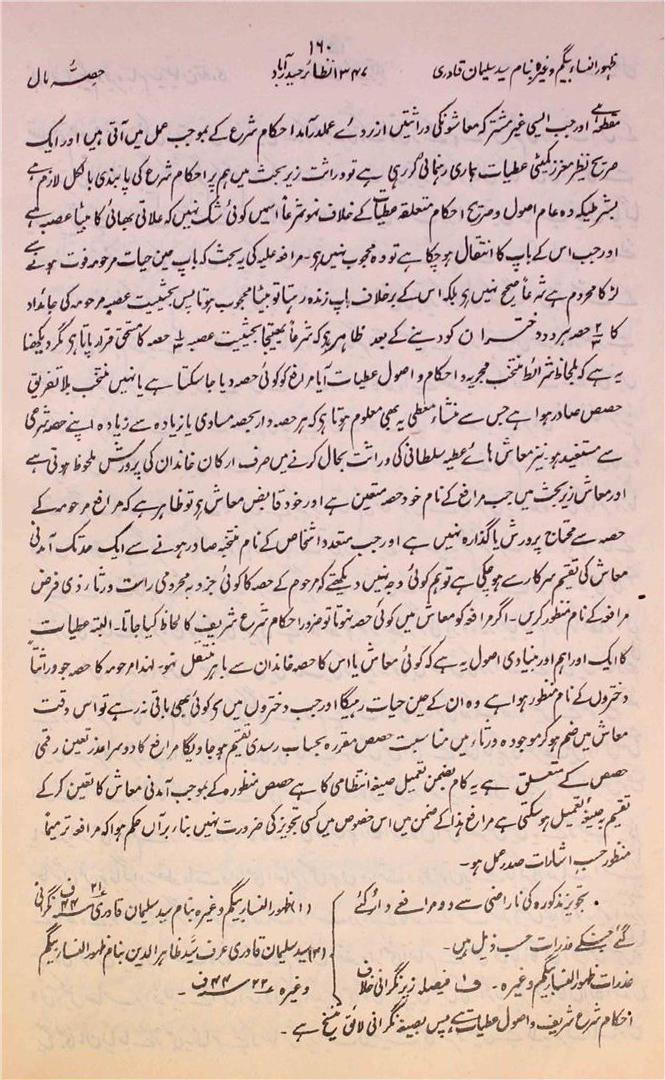 ۱۶۰
ظہور النساء بیگم وغیرہ بنام سید سلیمان قادری ۱۳۴۷ نظائر حیدرآباد حصۂ مال
مقطعہ ہے اور جب ایسی غیر مشترکہ معاشونکی وراثتیں از روئے عملدرآمد احکام شرع کے بموجب عمل میں آتی ہیں اور ایک
صریح نظیر معزز کمیٹی عطیات ہماری رہنمائی کر رہی ہے تو وراثت زیر بحث میں ہم پر احکام شرع کی پابندی بالکل لازم ہے
بشرطیکہ وہ عام اصول و صریح احکام متعلقہ عطیات کے خلاف نہو شرعاً اسمیں کوئی شک نہیں کہ علاتی بھائی کا بیٹا عصبہ ہے
اور جب اس کے باپ کا انتقال ہو چکا ہے تو وہ محجوب نہیں ہے۔ مرافعہ علیہ کی یہ بحث کہ باپ حین حیات مرحومہ فوت ہونے سے
لڑکا محروم ہے شرعاً صحیح نہیں ہے بلکہ اس کے برخلاف باپ زندہ رہتا تو بیٹا محجوب ہوتا پس بحیثیت عصبہ مرحومہ کی جائداد
کا حصہ ہر دو دختران کو دینے کے بعد ظاہر ہے کہ شرعاً بھتیجا بحیثیت عصبہ حصہ کا مستحق قرار پاتا ہے مگر دیکھنا
یہ ہے کہ بلحاظ شرائط منتخب مجریہ و احکام و اصول عطیات آیا مرافع کو کوئی حصہ دیا جا سکتا ہے یا نہیں منتخب بلا تفریق
حصص صادر ہوا ہے جس سے منشاء معطی یہ بھی معلوم ہوتا ہے کہ ہر حصہ دار بحصہ مساوی یا زیادہ سے زیادہ اپنے حصہ شرعی
سے مستفید ہو نیز معاش ہائے عطیہ سلطانی کی وراثت بحال کرنے میں صرف ارکان خاندان کی پرورش ملحوظ ہوتی ہے
اور معاش زیر بحث میں جب مرافع کے نام خود حصہ متعین ہے اور خود قابض معاش ہے تو ظاہر ہے کہ مرافع مرحومہ کے
حصہ سے محتاج پرورش یا گذارہ نہیں ہے اور جب متعدد اشخاص کے نام منتخبہ صادر ہونے سے ایک حد تک آمدنی
معاش کی تقسیم سرکار سے ہو چکی ہے تو ہم کوئی وجہ نہیں دیکھتے کہ مرحوم کے حصہ کا کوئی جزو بہ محرومی راست ورثاء ذی فرض
مرافعہ کے نام منظور کریں۔ اگر مرافعہ کو معاش میں کوئی حصہ نہوتا تو ضرور احکام شرع شریف کا لحاظ کیا جاتا۔ البتہ عطیات
کا ایک اور اہم اور بنیادی اصول یہ ہے کہ کوئی معاش یا اس کا حصہ خاندان سے باہر منتقل نہو۔ لہذا مرحومہ کا حصہ جو وراثتاً
دختروں کے نام منظور ہوا ہے وہ ان کے حین حیات رہیگا اور جب دختروں میں سے کوئی بھی باقی نہ رہے تو اس وقت
معاش میں ضم ہو کر موجودہ ورثاء میں مناسبت حصص مقررہ بحساب رسدی تقسیم ہو جاویگا مرافع کا دوسرا عذر تعین رقمی
حصص کے متعلق ہے یہ کام بضمن تعمیل صیغہ انتظامی کا ہے حصص منظورہ کے بموجب آمدنی معاش کا تعین کر کے
تقسیم بہ صیغۂ تعمیل ہو سکتی ہے مرافع ہذا کے ضمن میں اس خصوص میں کسی تجویز کی ضرورت نہیں بناءبرآں حکم ہوا کہ مرافعہ ترمیماً
منظور حسب اشارات صدر عمل ہو۔
تجویز مذکورہ کی ناراضی سے دو مرافعے دائر کئے (۱) ظہور النساء بیگم وغیرہ بنام سید سلیمان قادری نگرانی
گئے جنکے عذرات حسب ذیل ہیں۔ (۲) سید سلیمان قادری عرف سید طاہر الدین بنام ظہور النساء بیگم
عذرات ظہور النساء بیگم وغیرہ۔ ف۱ فیصلہ زیر نگرانی خلاف وغیرہ ۲۲ ۴۴ف۔
احکام شرع شریف و اصول عطیات ہے پس بصیغہ نگرانی لائق تنسیخ ہے۔